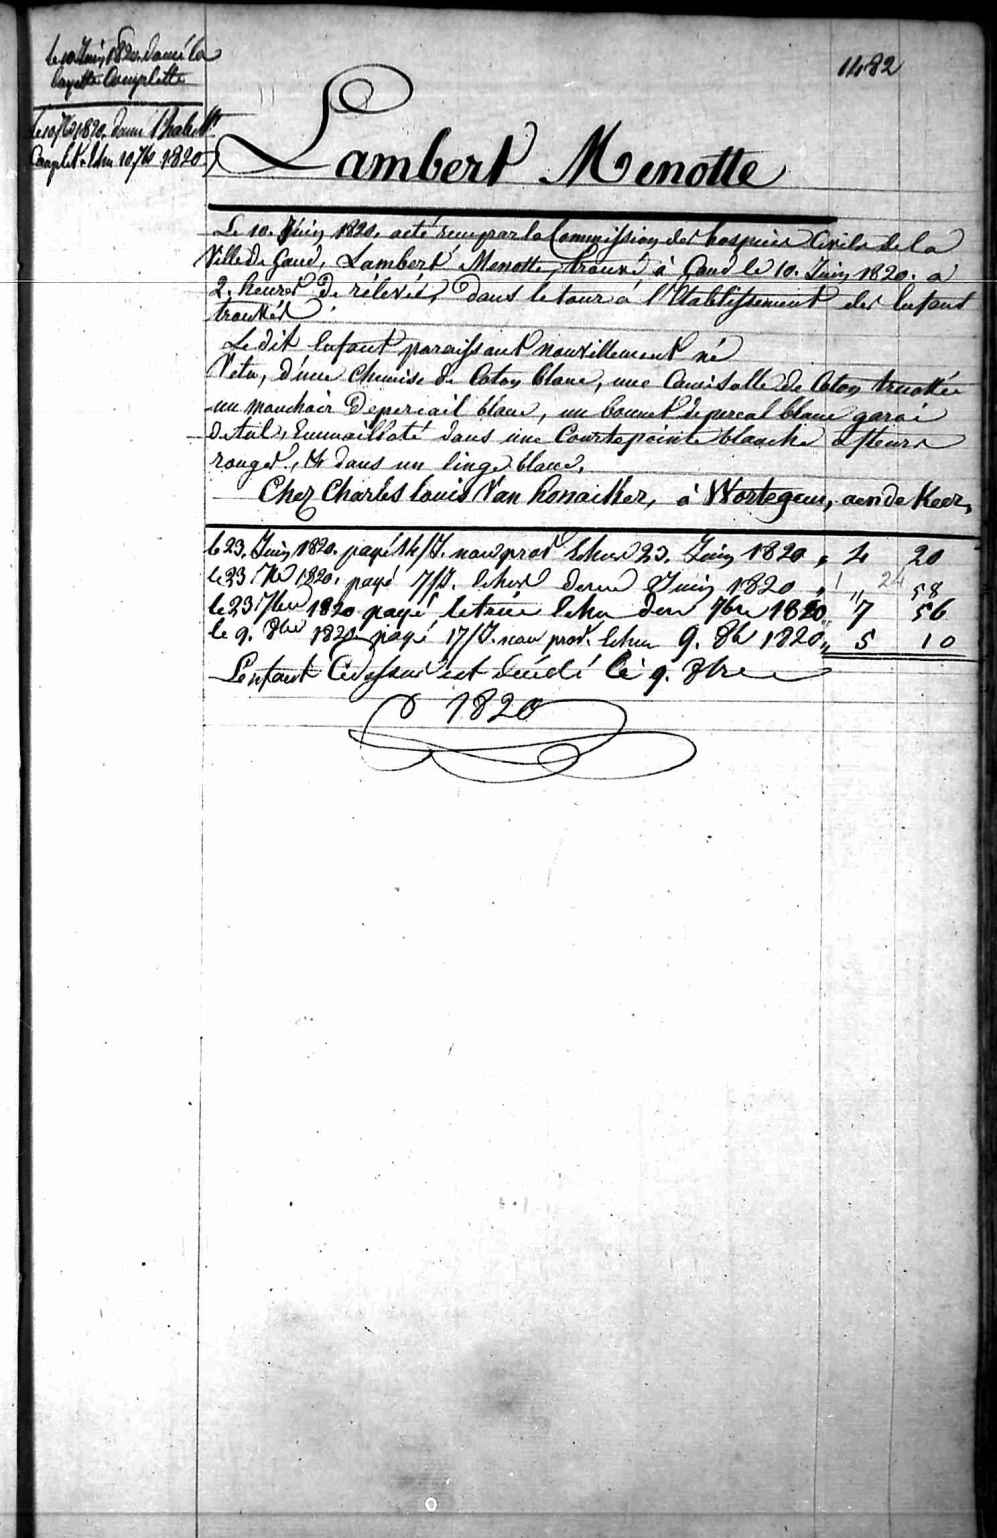 le 10 Juin 1820. donné la
layette Complette
le 10 7bre 1820. donné l'habillt
Complet. Echu 10 7bre 1820
1482
Lambert Menotte
Le 10. Juin 1820. acté reçu par la Commission des hospices Civils de la
Ville de Gand, Lambert Menotte, trouvé à Gand le 10. Juin 1820. à
2. heures de rélevée, dans le tour à l'Etablissement des Enfans
trouvés.
Le dit Enfant paraissant nouvellement né
Vetu, d'une Chemise de Coton blanc, une Camisolle de Coton tricotée
un mouchoir de percail blanc, un bonnet de percal blanc garni
de tul, Emmailloté dans une Courtepointe blanche à fleurs
rouges, & dans un linge blanc.
Chez Charles Louis Van honacker, à Wortegem, aen de Keer,
le 23. Juin 1820. payé 14/J. nouv prot Echus 23. Juin 1820 " 4 20
le 23 7bre 1820. payé 7/J. Echus derne Juin 1820 " " 58
24
le 23 7bre 1820 payé, le trim Echu dern 7bre 1820 " 7 56
le 9. 8bre 1820 payé 17/J. nouv prot. Echus 9. 8b 1820 " 5 10
L'enfant Cidessus est décédé le 9. 8bre
1820